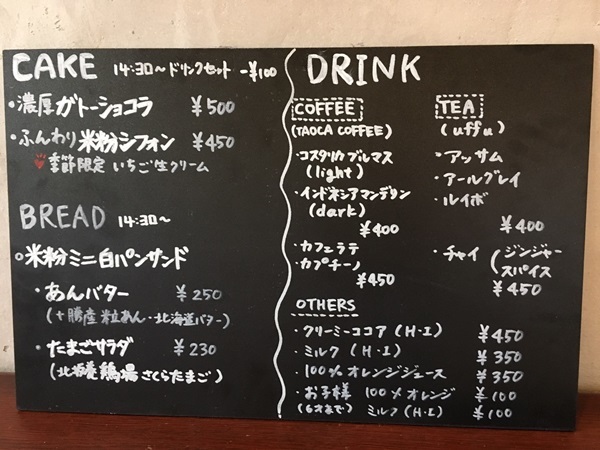 CAKE 14:30〜ドリンクセット -¥100
・濃厚ガトーショコラ ¥500
・ふんわり米粉シフォン ¥450
季節限定 いちご生クリーム
BREAD 14:30〜
米粉ミニ白パンサンド
・あんバター ¥250
(十勝産粒あん・北海道バター)
・たまごサラダ ¥230
(北坂養鶏場さくらたまご)
DRINK
COFFEE
(TAOCA COFFEE)
・コスタリカブルマス
(light)
・インドネシアマンデリン
(dark)
¥400
・カフェラテ
・カプチーノ
¥450
TEA
(uffu)
・アッサム
・アールグレイ
・ルイボ
¥400
・チャイ (ジンジャー
スパイス
¥450
OTHERS
・クリーミーココア (H・I) ¥450
・ミルク (H・I) ¥350
・100%オレンジジュース ¥350
・お子様 100%オレンジ ¥100
(6才まで) ミルク(H・I) ¥100